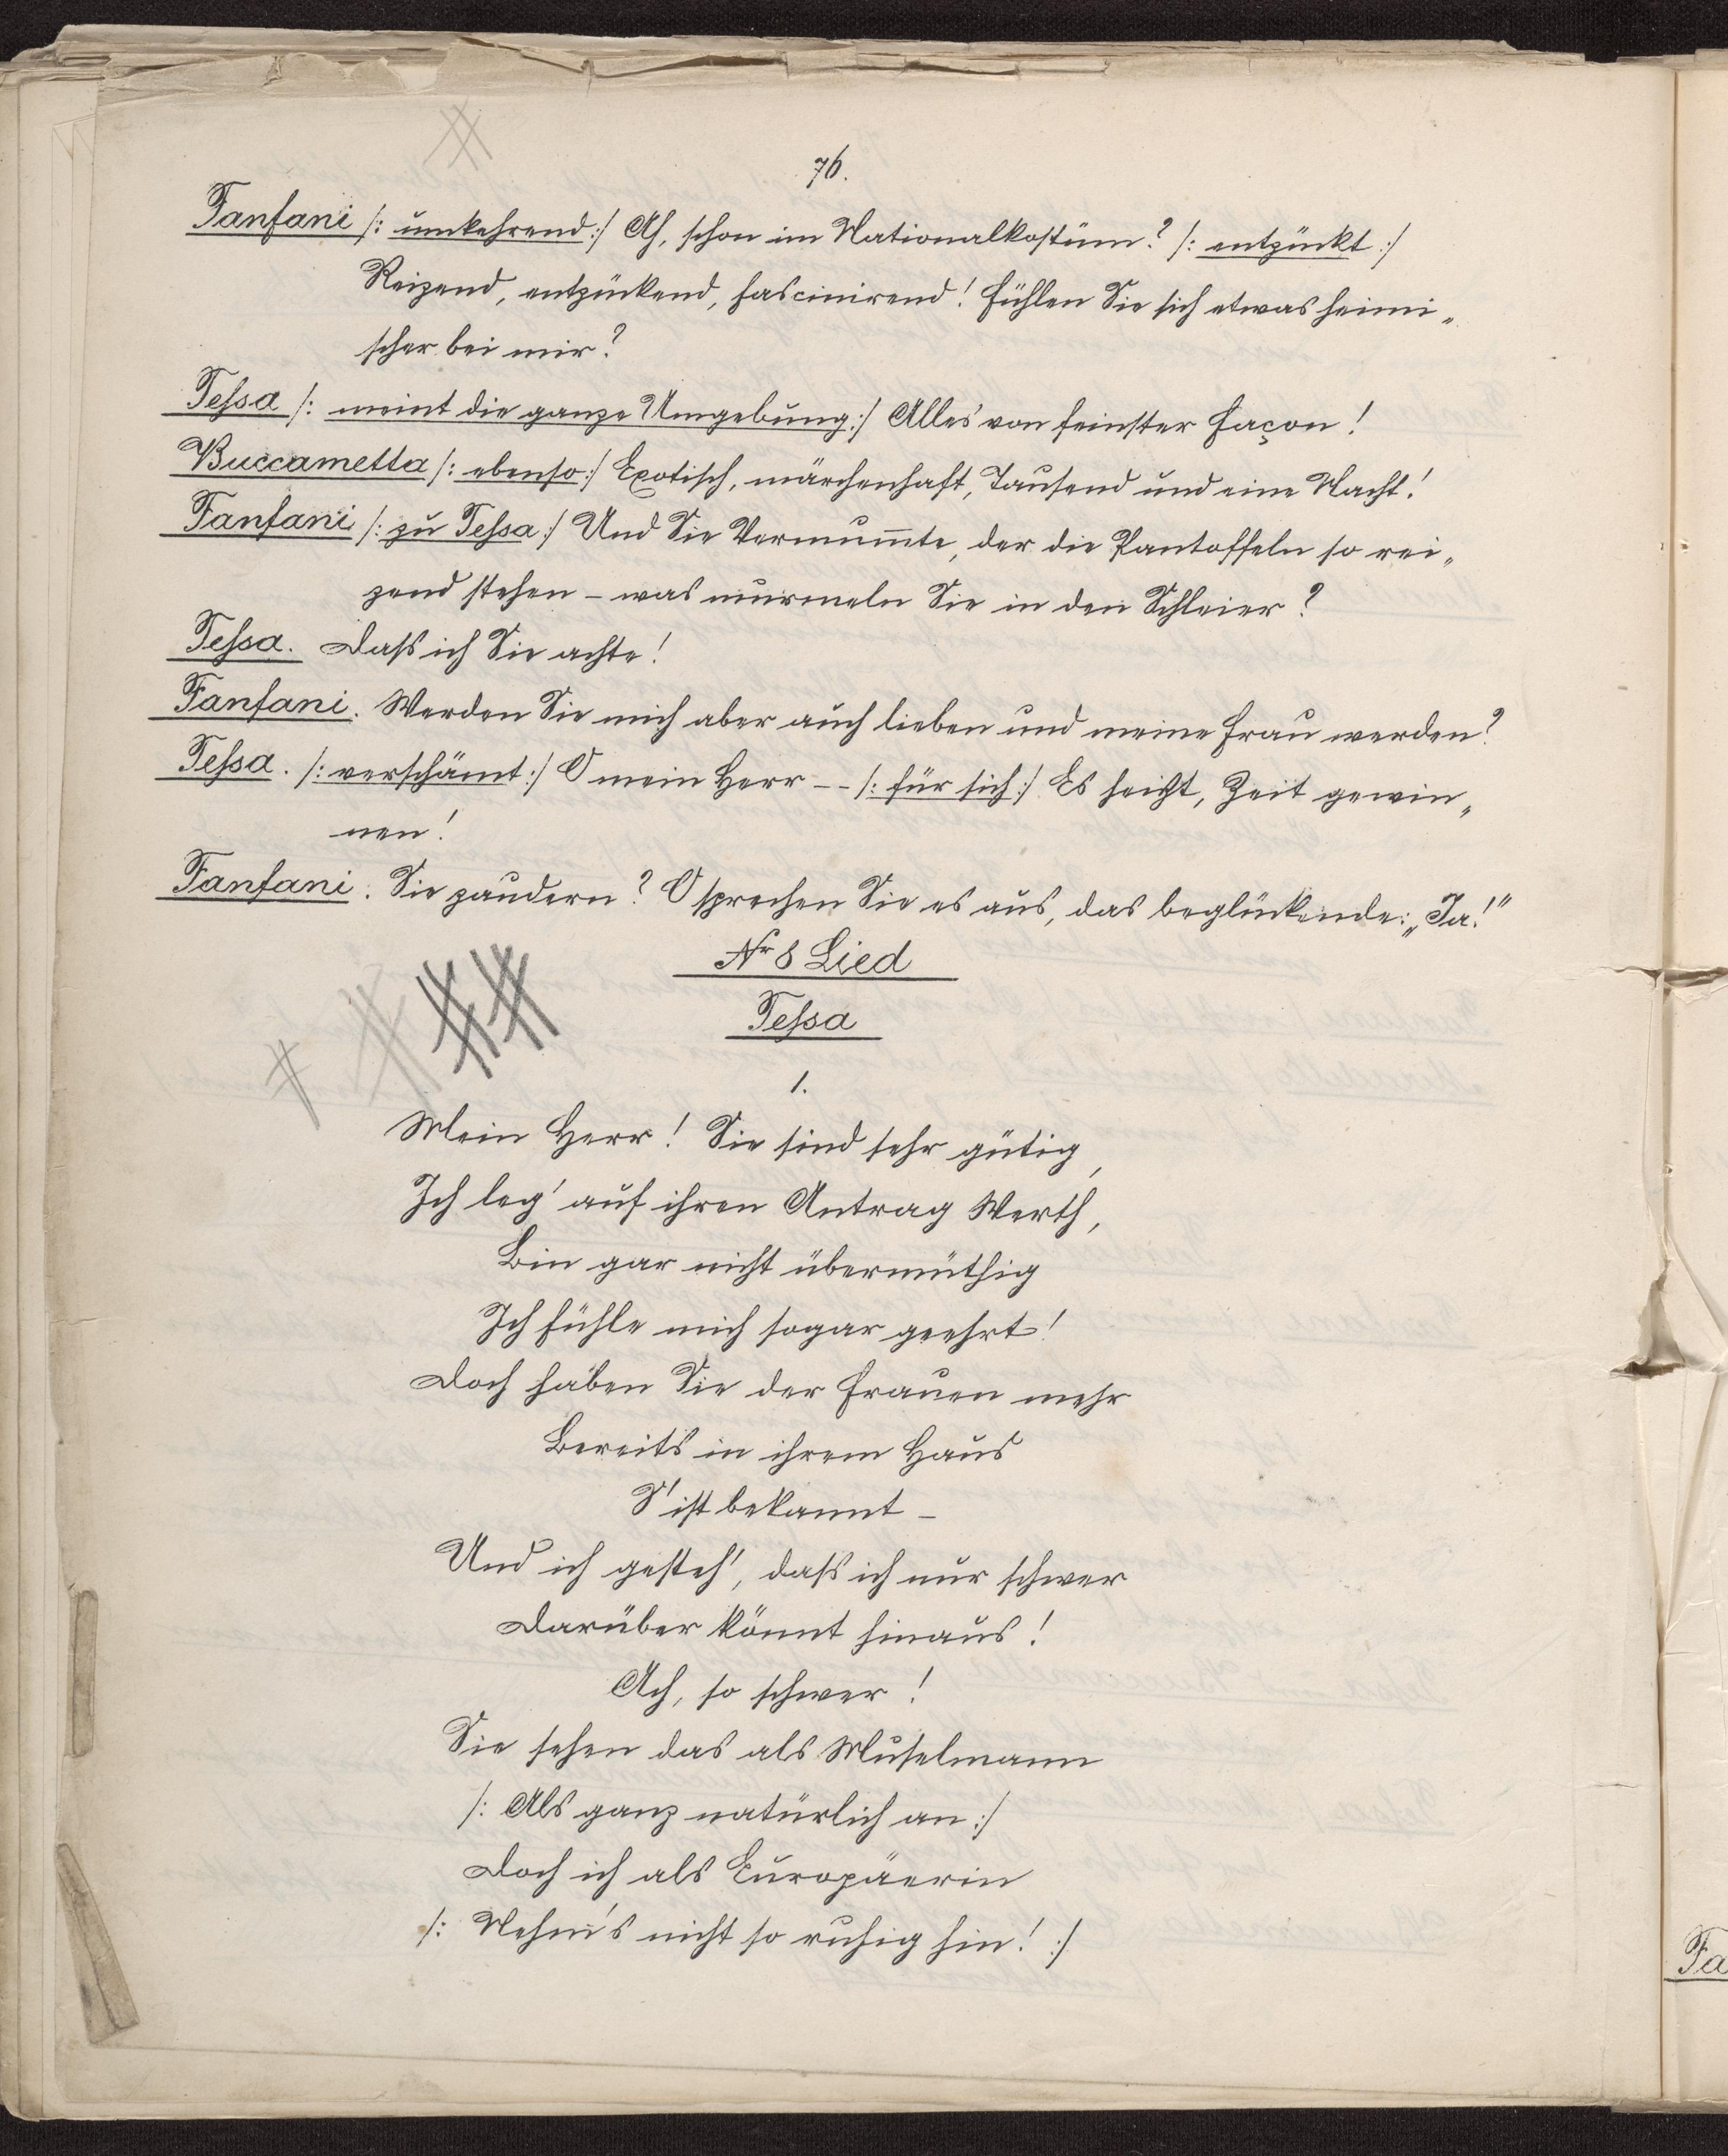 76.
Fanfani /: umkehrend :/ Ah, schon im Nationalkostüm? /: entzückt :/
Reizend, entzückend, fascinirend! Fühlen Sie sich etwas heimi„
scher bei mir?
Tessa /: meint die ganze Umgebung :/ Alles von feinster Façon!
Buccametta /: ebenso :/ Exotisch, märchenhaft, Tausend und eine Nacht!
Fanfani /: zu Tessa :/ Und Sie Vermum̅te, der die Pantoffeln so rei„
zend stehen – was murmeln Sie in den Schleier?
Tessa. Dass ich Sie achte!
Fanfani. Werden Sie mich aber auch lieben und meine Frau werden?
Tessa. /: verschämt :/ O mein Herr – – /: für sich :/ Es heißt, Zeit gewin„
nen!
Fanfani. Sie zaudern? O sprechen Sie es aus, das beglückende: „Ja!"
Nr 8 Lied
Tessa
1.
Mein Herr! Sie sind sehr gütig,
Ich leg' auf ihren Antrag Werth,
Bin gar nicht übermüthig
Ich fühle mich sogar geehrt!
Doch haben Sie der Frauen mehr
Bereits in ihrem Haus
S' ist bekannt –
Und ich gesteh', dass ich nur schwer
Darüber könnt hinaus!
Ach, so schwer!
Sie sehen das als Muselmann
/: Als ganz natürlich an :/
Doch ich als Europäerin
/: Nehm's nicht so ruhig hin! :/
Fa